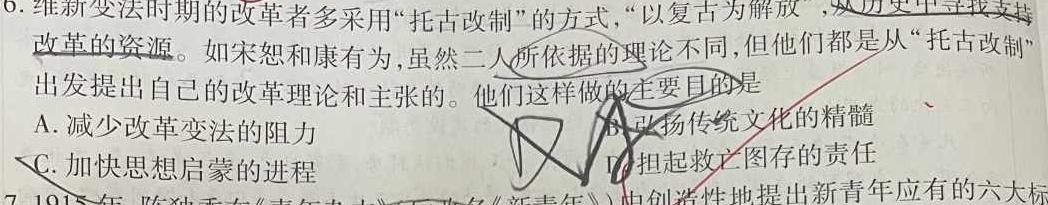 6. 维新变法时期的改革者多采用“托古改制”的方式,“以复古为解放”,从历史中寻找支持
改革的资源。如宋恕和康有为,虽然二人所依据的理论不同,但他们都是从“托古改制”
出发提出自己的改革理论和主张的。他们这样做的主要目的是
A. 减少改革变法的阻力 B. 弘扬传统文化的精髓
C. 加快思想启蒙的进程 D. 担起救亡图存的责任
7. 1915年,陈独秀在《青年杂志》 《新青年》)中创造性地提出新青年应有的六大标